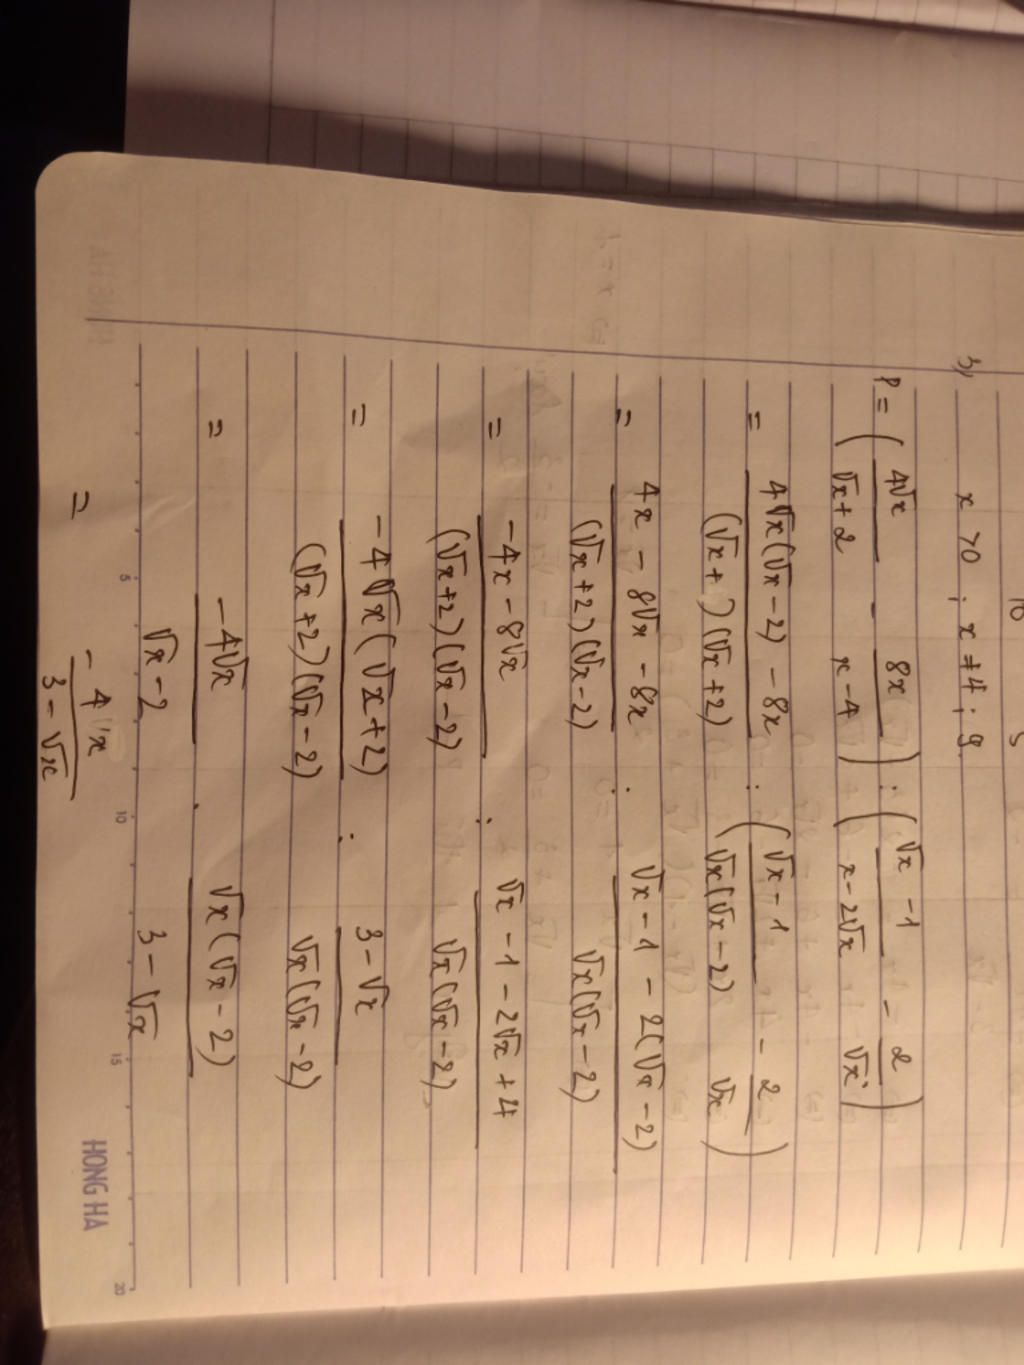 3) x > 0 ; x ≠ 4 ; 9
P = ( 4√x / (√x + 2) - 8x / (x - 4) ) : ( (√x - 1) / (x - 2√x) - 2 / √x )
= (4√x(√x - 2) - 8x) / ((√x + )(√x + 2)) : ( (√x - 1) / (√x(√x - 2)) - 2 / √x )
= (4x - 8√x - 8x) / ((√x + 2)(√x - 2)) : (√x - 1 - 2(√x - 2)) / (√x(√x - 2))
= (-4x - 8√x) / ((√x + 2)(√x - 2)) : (√x - 1 - 2√x + 4) / (√x(√x - 2))
= (-4√x(√x + 2)) / ((√x + 2)(√x - 2)) : (3 - √x) / (√x(√x - 2))
= (-4√x) / (√x - 2) . (√x(√x - 2)) / (3 - √x)
= (-4x) / (3 - √x)
5 10 15 20
HONG HA